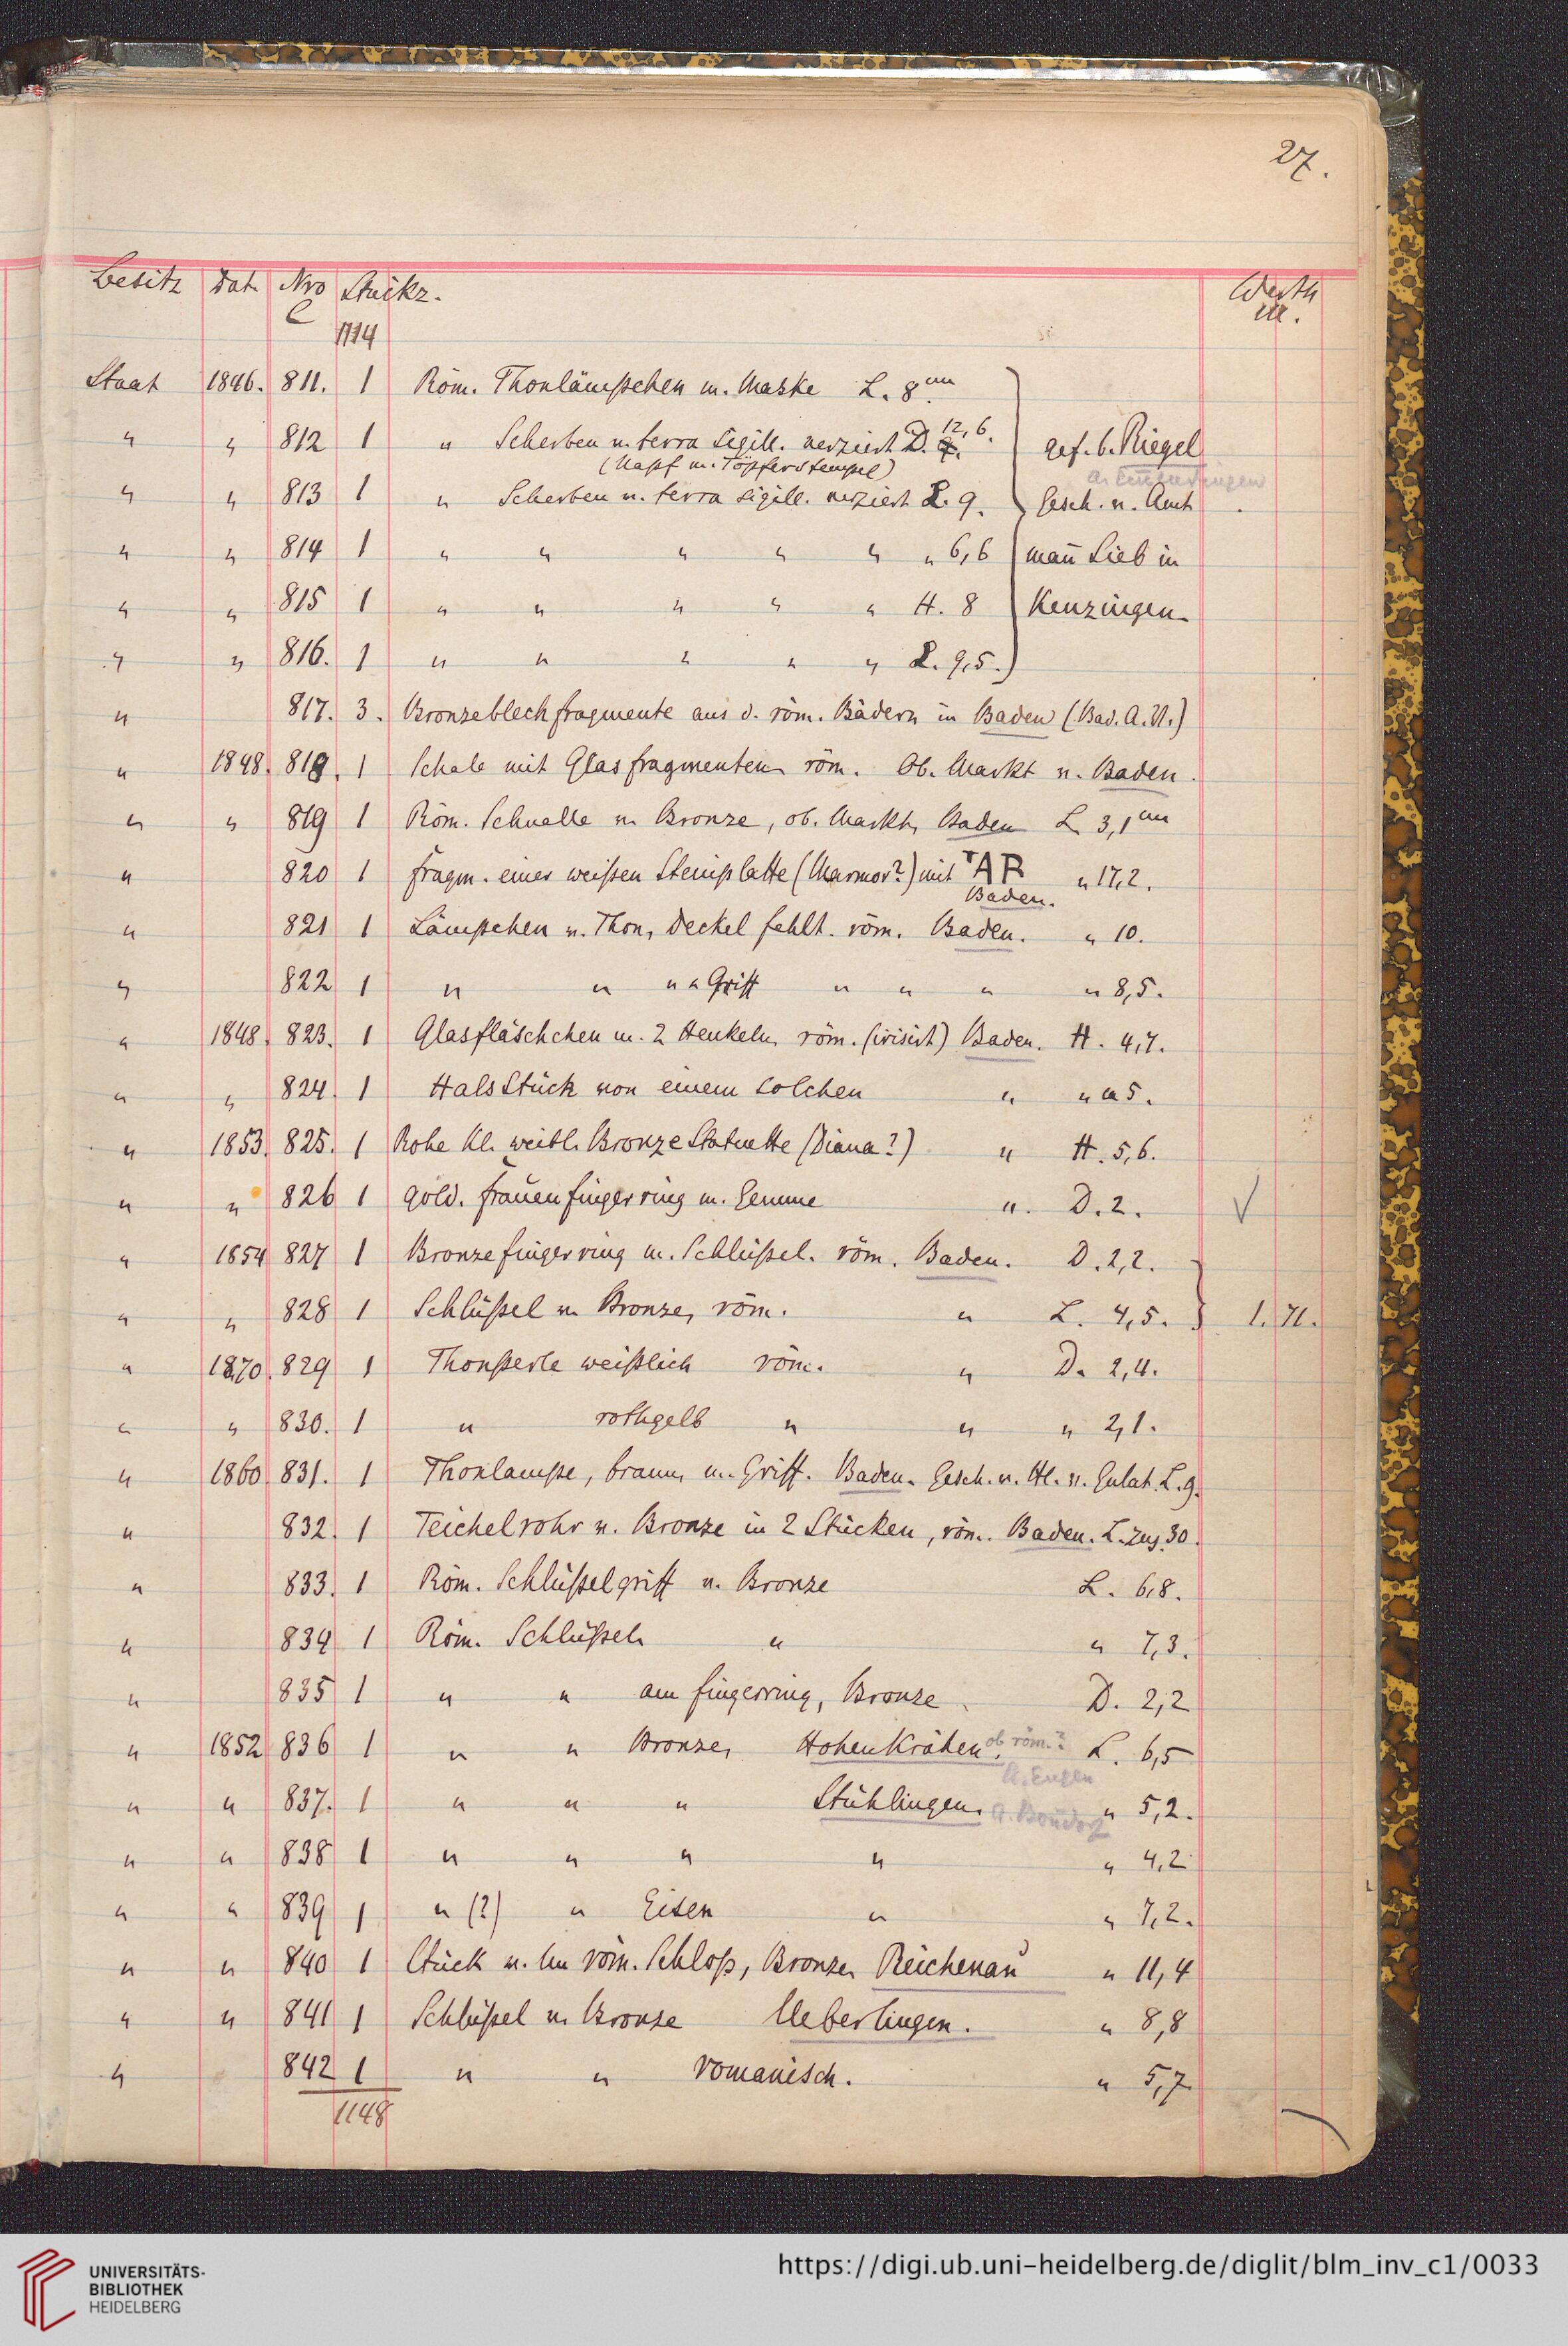 27.
Besitz Dat. Nro Stückz. Werth
C M.
1114
Staat 1846. 811. 1 Röm. Thonlämpchen m. Maske L. 8 cm.
" " 812 1 " Scherben v. terra sigill. verziert D. 12,6.
(Napf m. Töpferstempel) gef. b. Riegel
A. Emmendingen
" " 813 1 " Scherben v. terra sigill. verziert L. 9. Gesch. v. Amt
" " 814 1 " " " " " " 6,6 mañ Lieb in
" " 815 1 " " " " " H. 8 Kenzingen.
" " 816. 1 " " " " " L. 9,5.
" 817. 3. Bronzeblechfragmente aus d. röm. Bädern in Baden (Bad. A.V.)
" 1848. 818. 1 Schale mit Glasfragmenten röm. Ob. Markt v. Baden.
" " 819 1 Röm. Schnalle v. Bronze, ob. Markt, Baden L. 3,1 cm
" 820 1 Fragm. einer weißen Steinplatte (Marmor?) mit TAR " 17,2.
Baden.
" 821 1 Lämpchen v. Thon, Deckel fehlt. röm. Baden. " 10.
" 822 1 " " " " Griff " " " " 8,5.
" 1848. 823. 1 Glasfläschchen m. 2 Henkeln, röm. (irisirt) Baden. H. 4,7.
" " 824. 1 Halsstück von einem solchen " " 5.
" 1853. 825. 1 Rohe kl. weibl. Bronze Statuette (Diana?) " H. 5,6.
" " 826 1 gold. Frauenfingerring m. Gemme ". D. 2. √
" 1854 827 1 Bronzefingerring m. Schlüßel. röm. Baden. D. 2,2.
" " 828 1 Schlüßel v. Bronze, röm. " L. 4,5. 1. 71.
" 1870. 829 1 Thonperle weißlich röm. " D. 2,4.
" " 830. 1 " rothgelb " " " 2,1.
" 1860. 831. 1 Thonlampe, braun, m. Griff. Baden. Gesch. v. H. v. Gulat. L. 9.
" 832. 1 Teichelrohr v. Bronze in 2 Stücken, röm. Baden. L. zus. 30.
" 833. 1 Röm. Schlüßelgriff v. Bronze L. 6,8.
" 834 1 Röm. Schlüßel, " " 7,3.
" 835 1 " " am Fingerring, Bronze D. 2,2
" 1852 836 1 " " Bronze, Hohenkrähen. ob röm.? L. 6,5
A. Engen
" " 837. 1 " " " Stühlingen. A. Bonndorf " 5,2.
" " 838 1 " " " " " 4,2
" " 839 1 " (?) " Eisen " " 7,2.
" " 840 1 Stück v. röm. Schloß, Bronze, Reichenau " 11,4
" " 841 1 Schlüßel v. Bronze Ueberlingen. " 8,8
" 842 1 " " romanisch. " 5,7
1148
UNIVERSITÄTS-
BIBLIOTHEK
HEIDELBERG
https://digi.ub.uni-heidelberg.de/diglit/blm_inv_c1/0033